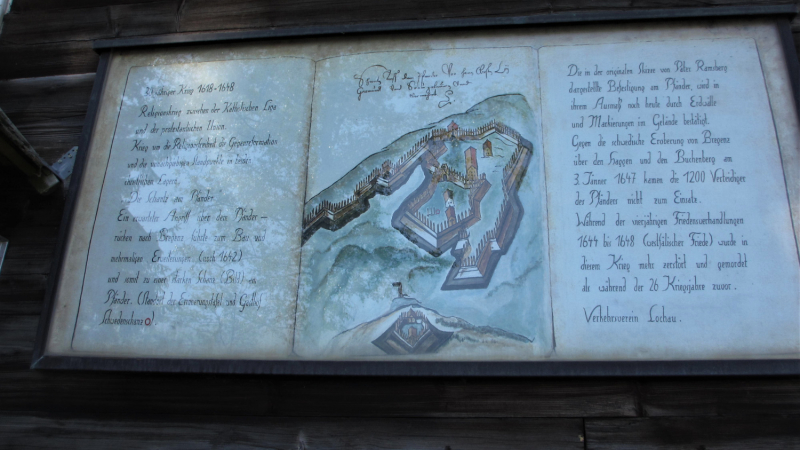 30 jähriger Krieg 1618-1648
Religionskrieg zwischen der Katholischen Liga
und der protestantischen Union.
Krieg um die Religionsfreiheit, die Gegenreformation
und die
Lagern.
"Die Schanze am Pfänder"
Ein erwarteter Angriff über den Pfänder -
rücken nach Bregenz führte zum Bau und
mehrmaligen Erweiterungen (nach 1642)
und somit zu einer starken Schanz (Burg) am
Pfänder. (Standort der Erinnerungstafel und Gasthof
Schwedenschanze).
Die in der originalen Skizze von Peter Ramsberg
dargestellte Befestigung am Pfänder, wird in
ihrem Ausmaß noch heute durch Erdwälle
und Markierungen im Gelände bestätigt.
Gegen die schwedische Eroberung von Bregenz
über den Haggen und den Buchenberg am
3. Jänner 1647 kamen die 1200 Verteidiger
der Pfänders nicht zum Einsatz.
Während der vierjährigen Friedensverhandlungen
1644 bis 1648 (westfälischer Friede) wurde in
diesem Krieg mehr zerstört und gemordet
als während der 26 Kriegsjahre zuvor.
Verkehrsverein Lochau.